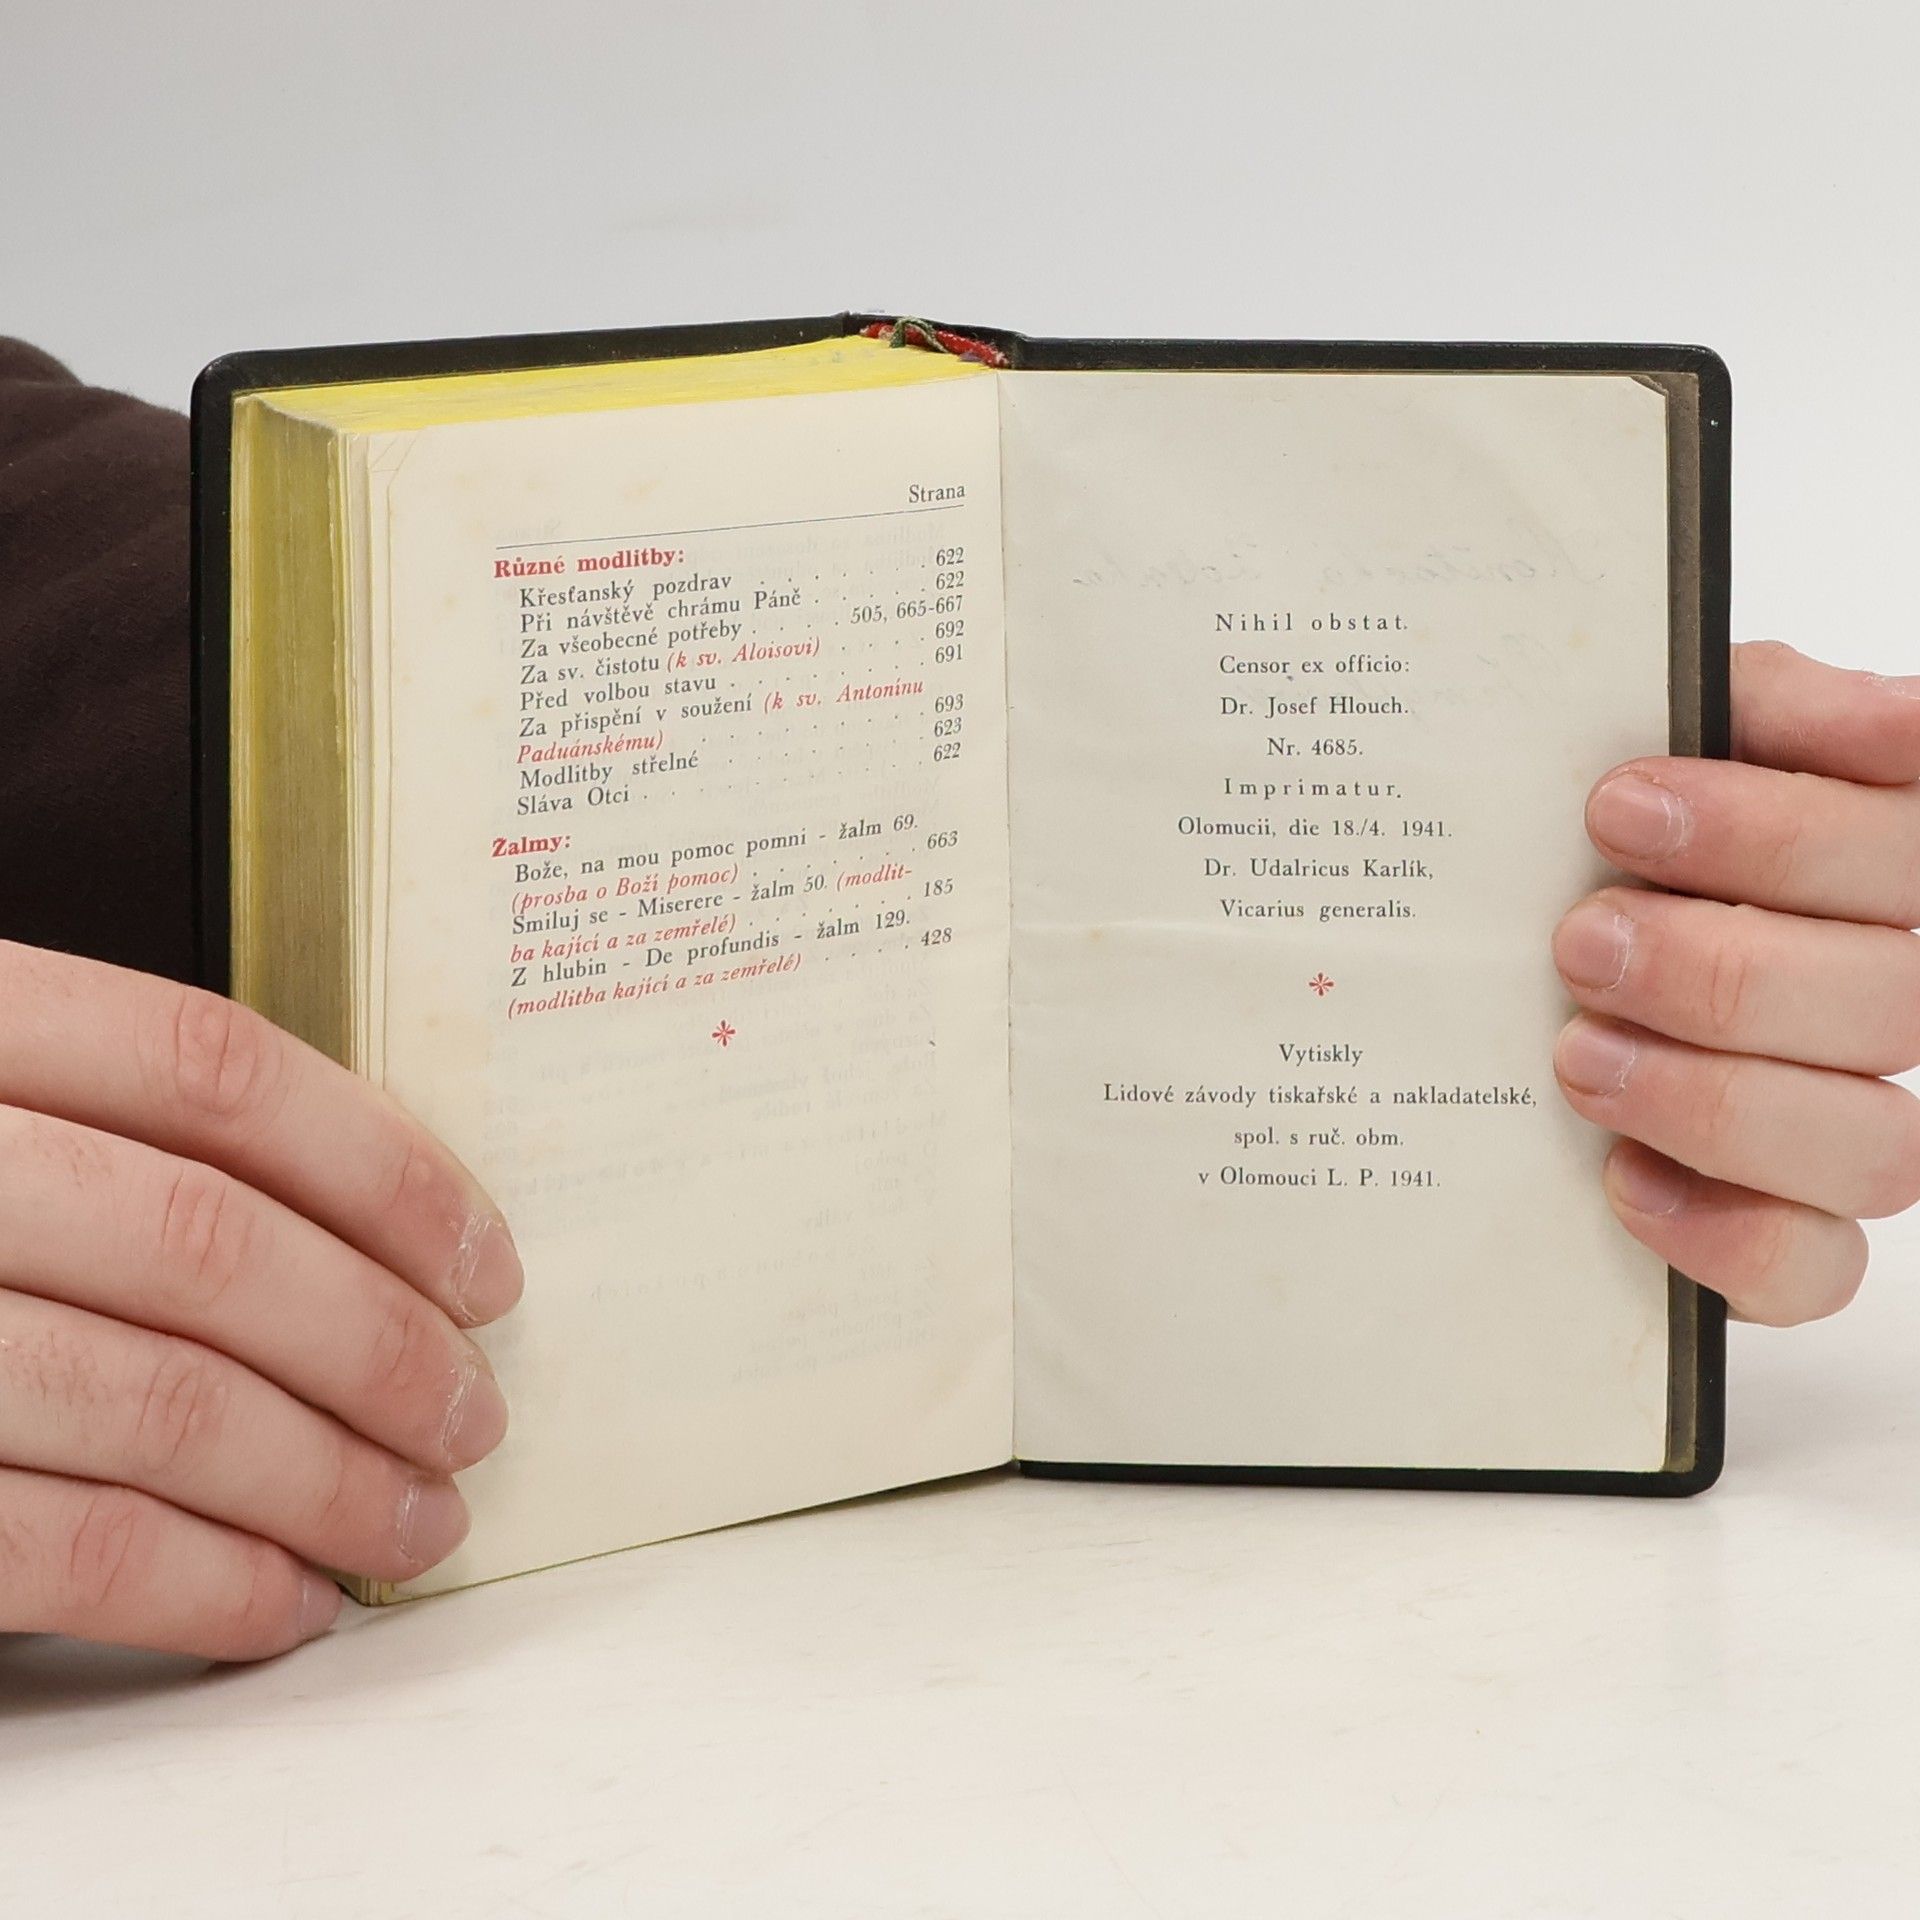 Strana
Různé modlitby:
Křesťanský pozdrav . . . . . . . 622
Při návštěvě chrámu Páně . . . . . 622
Za všeobecné potřeby . . . . 505, 665-667
Za sv. čistotu (k sv. Aloisovi) . . . . 692
Před volbou stavu . . . . . . . . 691
Za přispění v soužení (k sv. Antonínu
Paduánskému) . . . . . . . . 693
Modlitby střelné . . . . . . . . 623
Sláva Otci . . . . . . . . . 622
Žalmy:
Bože, na mou pomoc pomni - žalm 69.
(prosba o Boží pomoc) . . . . . . . 663
Smiluj se - Miserere - žalm 50. (modlit-
ba kající a za zemřelé) . . . . . . . 185
Z hlubin - De profundis - žalm 129.
(modlitba kající a za zemřelé) . . . . 428
Nihil obstat.
Censor ex officio:
Dr. Josef Hlouch.
Nr. 4685.
Imprimatur.
Olomucii, die 18./4. 1941.
Dr. Udalricus Karlík,
Vicarius generalis.
Vytiskly
Lidové závody tiskařské a nakladatelské,
spol. s ruč. obm.
v Olomouci L. P. 1941.